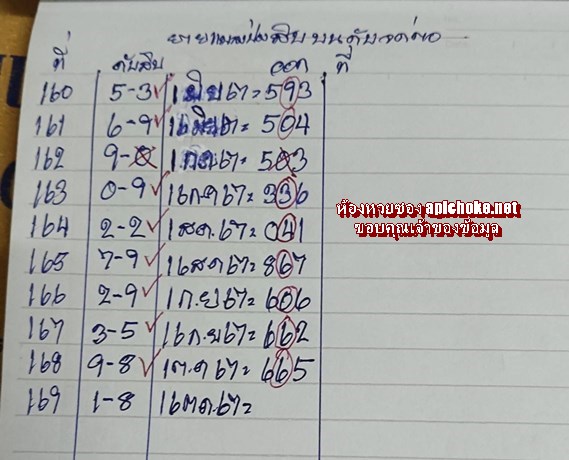 ที่ ดับสิบ ออก ที่
160 5-3 1 มิย 67= 593
161 6-9 16 มิย 67= 504
162 9-8 1.กค 67= 503
163 0-9 16 ก.ค 67= 936
164 2-2 1 สค.67= 041
165 7-9 16 สค 67= 867
166 2-9 1 ก.ย 67= 606
167 3-5 16 ก.ย 67= 662
168 9-8 1 ต.ค 67= 665
169 1-8 16 ตค.67=
ห้องหวยซอง apichoke.net
ขอบคุณเจ้าของข้อมูล